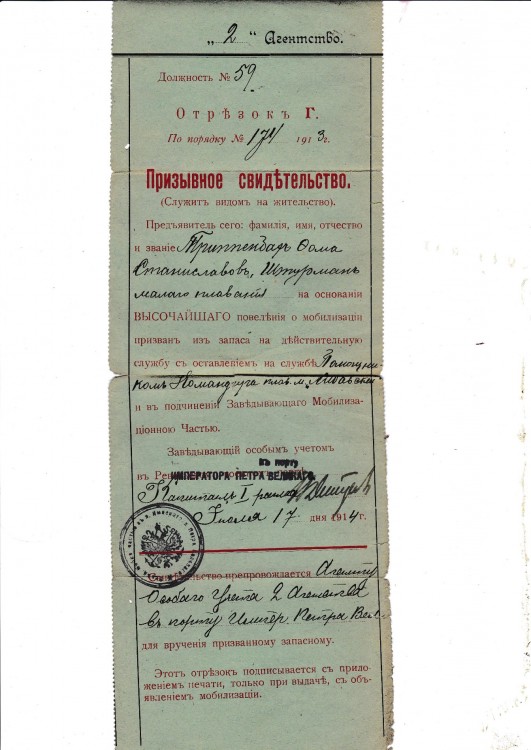 „ 2 “ Агентство.
Должность № 59.
Отрѣзокъ Г.
По порядку № 174 1913г.
Призывное свидѣтельство.
(Служитъ видомъ на жительство).
Предъявитель сего: фамилія, имя, отчество
и званіе Ѳома
Станиславовъ, Штурманъ
малаго плаванія на основаніи
ВЫСОЧАЙШАГО повелѣнія о мобилизаціи
призванъ изъ запаса на дѣйствительную
службу съ оставленіемъ на службѣ Помощни
комъ Командира плав. м.
и въ подчиненіи Завѣдывающаго Мобилиза-
ціонною Частью.
Завѣдывающій особымъ учетомъ
въ порту
въ ИМПЕРАТОРА ПЕТРА ВЕЛИКАГО.
Капитанъ I ранга
Іюля 17 дня 1914г.
препровождается Агенту
Особаго Учета 2 Агентства
въ порту Импер. Петра Вел.
для врученія призванному запасному.
Этотъ отрѣзокъ подписывается съ прило-
женіемъ печати, только при выдачѣ, съ объ-
явленіемъ мобилизаціи.